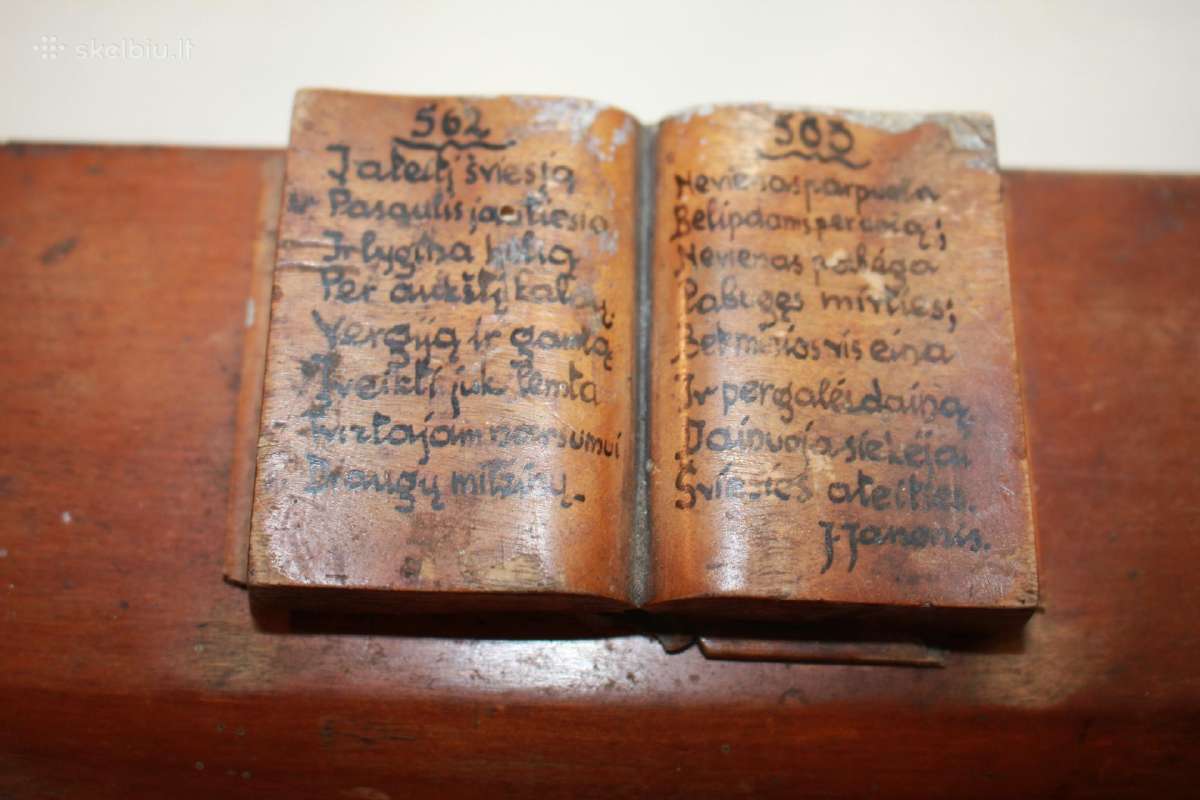 skelbiu.lt
562
Į ateitį šviesią
Pasaulis jau tiesia
Ir lygina kelią
Per aukštį kalnų
Vergiją ir gaudą
Įveikti juk lemta
Tvirtajam narsumui
Draugų milžinų.
563
Nevienas parpuola
Belipdams per uolą;
Nevienas pabėga
Pabūgęs mirties;
Bet minios vis eina
Ir pergalės dainą
Dainuoja siekėjai
Šviesios ateities.
J. Janonis.